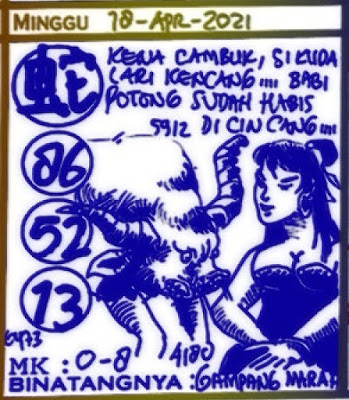 MINGGU 18-APR-2021
蛇
KENA CAMBUK, SI KUDA
LARI KENCANG .... BABI
POTONG SUDAH HABIS
5912 DI CINCANG ....
86
52
13
6473
MK : 0-8 4180
BINATANGNYA : GAMPANG MARAH